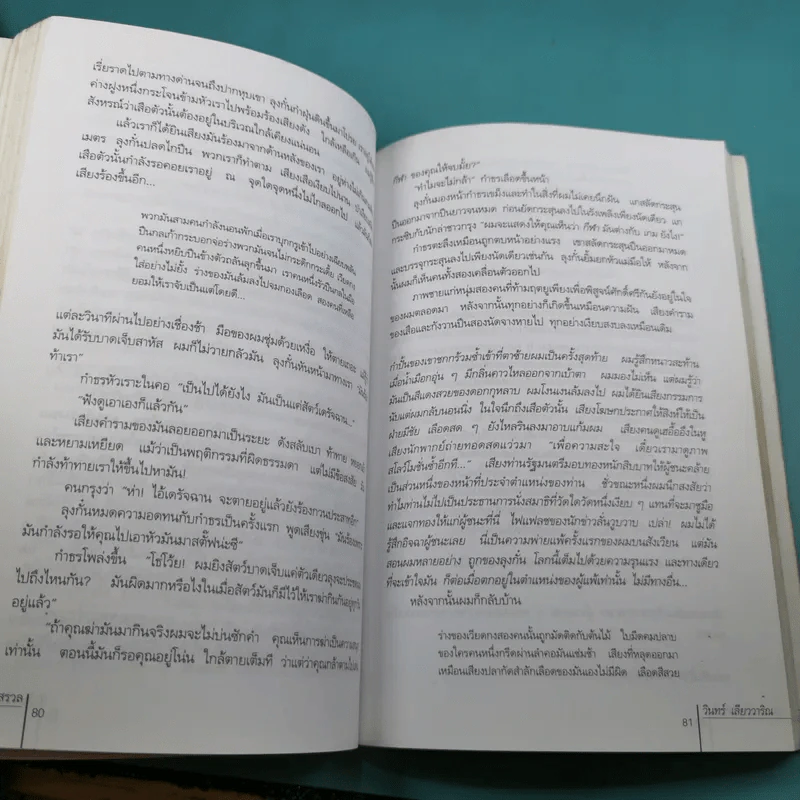 เรี่ยราดไปตามทางด่านจนถึงปากหุบเขา ลุงกั่นกำฝุ่นดินขึ้นมาโปรย
ค่างฝูงหนึ่งกระโจนข้ามหัวเราไปพร้อมร้องเสียงดัง ใกล้เหลือเกิน
สังหรณ์ว่าเสือตัวนั้นต้องอยู่ในบริเวณใกล้เคียงแน่นอน
แล้วเราก็ได้ยินเสียงมันร้องมาจากด้านหลังของเรา อยู่ห่างไม่เกิน
เมตร ลุงกั่นปลดไกปืน พวกเราก็ทำตาม เสียงเสือเงียบไปนาน
เสือตัวนั้นกำลังรอคอยเราอยู่ ณ จุดใดจุดหนึ่งไม่ไกลออกไป
เสียงร้องขึ้นอีก...
พวกมันสามคนกำลังนอนพักเมื่อเราบุกกรูเข้าไปอย่างเงียบกริบ
ปืนกลเก้ากระบอกจ่อร่างพวกมันจนไม่กระดิกกระเดี้ย
คนหนึ่งหยิบปืนข้างตัวถลันลุกขึ้นมา เราคนหนึ่งรัวปืนกลในมือ
ใส่อย่างไม่ยั้ง ร่างของมันล้มลงไปจมกองเลือด สองคนที่เหลือ
ยอมให้เราจับเป็นแต่โดยดี...
แต่ละวินาทีผ่านไปอย่างเชื่องช้า มือของผมชุ่มด้วยเหงื่อ ให้ตายเถอะ
มันได้รับบาดเจ็บสาหัส ผมก็ไม่วายกลัวมัน ลุงกั่นหันหน้ามาทางเรา
ท้าเรา”
กำธรหัวเราะในคอ “เป็นไปได้ยังไง มันเป็นแค่สัตว์เดรัจฉาน...”
“ฟังดูเอาเองก็แล้วกัน”
เสียงคำรามของมันลอยออกมาเป็นระยะ ดังสลับเบา ท้าทาย
และหยามเหยียด แม้ว่าเป็นพฤติกรรมที่ผิดธรรมดา แต่ไม่มีข้อสงสัย
กำลังท้าทายเราให้ขึ้นไปหามัน!
คนกรุงว่า “ห่า! ไอ้เดรัจฉาน จะตายอยู่แล้วยังร้องกวนประสาทอีก”
ลุงกั่นหมดความอดทนกับกำธรเป็นครั้งแรก พูดเสียงขุ่น
มันกำลังรอให้คุณไปเอาหัวมันมาสตั๊ฟน่ะซี”
กำธรโพล่งขึ้น “โธ่โว้ย! ผมยิงสัตว์บาดเจ็บแค่ตัวเดียวลุงจะประชด
ไปถึงไหนกัน? มันผิดมากหรือไงในเมื่อสัตว์มันก็มีไว้ให้เราฆ่ากินกัน
อยู่แล้ว”
“ถ้าคุณฆ่ามันมากินจริงผมจะไม่บ่นซักคำ คุณเห็นการฆ่าเป็นความสนุก
เท่านั้น ตอนนี้มันก็รอคุณอยู่โน่น ใกล้ตายเต็มที ว่าแต่ว่าคุณกล้าตามไป
สรวล
80
กีฬา ของคุณให้จบมั้ย?”
“ทำไมจะไม่กล้า” กำธรเลือดขึ้นหน้า
ลุงกั่นมองหน้ากำธรเขม็งและทำในสิ่งที่ผมไม่เคยนึกฝัน แกสลัดกระสุน
ปืนออกมาจากปืนยาวจนหมด ก่อนยัดกระสุนลงไปในรังเพลิงเพียงนัดเดียว แก
กระซิบกับนักล่าชาวกรุง “ผมจะแสดงให้คุณเห็นว่า กีฬา มันต่างกับ เกม ยังไง!”
กำธรตะลึงเหมือนถูกตบหน้าอย่างแรง เขาสลัดกระสุนปืนออกมาหมด
และบรรจุกระสุนลงไปเพียงนัดเดียวเช่นกัน ลุงกั่นยิ้มยกหัวแม่มือให้ หลังจาก
นั้นผมก็เห็นคนทั้งสองเคลื่อนตัวออกไป
ภาพชายแก่หนุ่มสองคนที่ท้ามฤตยูเพียงเพื่อพิสูจน์ศักดิ์ศรีกันยังอยู่ในใจ
ของผมตลอดมา หลังจากนั้นทุกอย่างก็เกิดขึ้นเหมือนความฝัน เสียงคำราม
ของเสือและกังวานปืนสองนัดจางหายไป ทุกอย่างเงียบสงบลงเหมือนเดิม
กำปั้นของเขาชกกร้วมซ้ำเข้าที่ตาซ้ายผมเป็นครั้งสุดท้าย ผมรู้สึกหนาวสะท้าน
เมื่อน้ำเมือกอุ่น ๆ มีกลิ่นคาวไหลออกจากเบ้าตา ผมมองไม่เห็น แต่ผมรู้ว่า
มันเป็นสีแดงสวยของดอกกุหลาบ ผมโงนเงนล้มลงไป ผมได้ยินเสียงกรรมการ
นับแต่ผมกลับนอนนิ่ง ในใจนึกถึงเสือตัวนั้น เสียงโฆษกประกาศให้สิงห์ให้เป็น
ฝ่ายมีชัย เลือดสด ๆ ยังไหลรินลงมาอาบแก้มผม เสียงคนดูเฮอื้ออึงในหู
เสียงนักพากย์ถ่ายทอดสดแว่วมา “เพื่อความสะใจ เดี๋ยวเรามาดูภาพ
สโลว์โมชั่นซ้ำอีกที...” เสียงท่านรัฐมนตรีมอบทองหนักสิบบาทให้ผู้ชนะคล้าย
เป็นส่วนหนึ่งของหน้าที่ประจำตำแหน่งของท่าน ชั่วขณะหนึ่งผมนึกสงสัยว่า
ทำไมท่านไม่ไปเป็นประธานการนั่งสมาธิที่วัดใดวัดหนึ่งเงียบ ๆ แทนที่จะมาชูมือ
และแจกทองให้แก่ผู้ชนะที่นี่ ไฟแฟลชของนักข่าวลั่นวูบวาบ เปล่า! ผมไม่ได้
รู้สึกอิจฉาผู้ชนะเลย นี่เป็นความพ่ายแพ้ครั้งแรกของผมบนสังเวียน แต่มัน
สอนผมหลายอย่าง ถูกของลุงกั่น โลกนี้เต็มไปด้วยความรุนแรง และทางเดียว
ที่จะเข้าใจมัน ก็ต่อเมื่อตกอยู่ในตำแหน่งของผู้แพ้เท่านั้น ไม่มีทางอื่น...
หลังจากนั้นผมก็กลับบ้าน
ร่างของเวียดกงสองคนนั้นถูกมัดติดกับต้นไม้ ใบมีดคมปลาบ
ของใครคนหนึ่งกรีดผ่านลำคอมันแช่มช้า เสียงที่หลุดออกมา
เหมือนเสียงปลากัดสำลักเลือดของมันเองไม่มีผิด เลือดสีสวย
81
วินทร์ เลียววาริณ